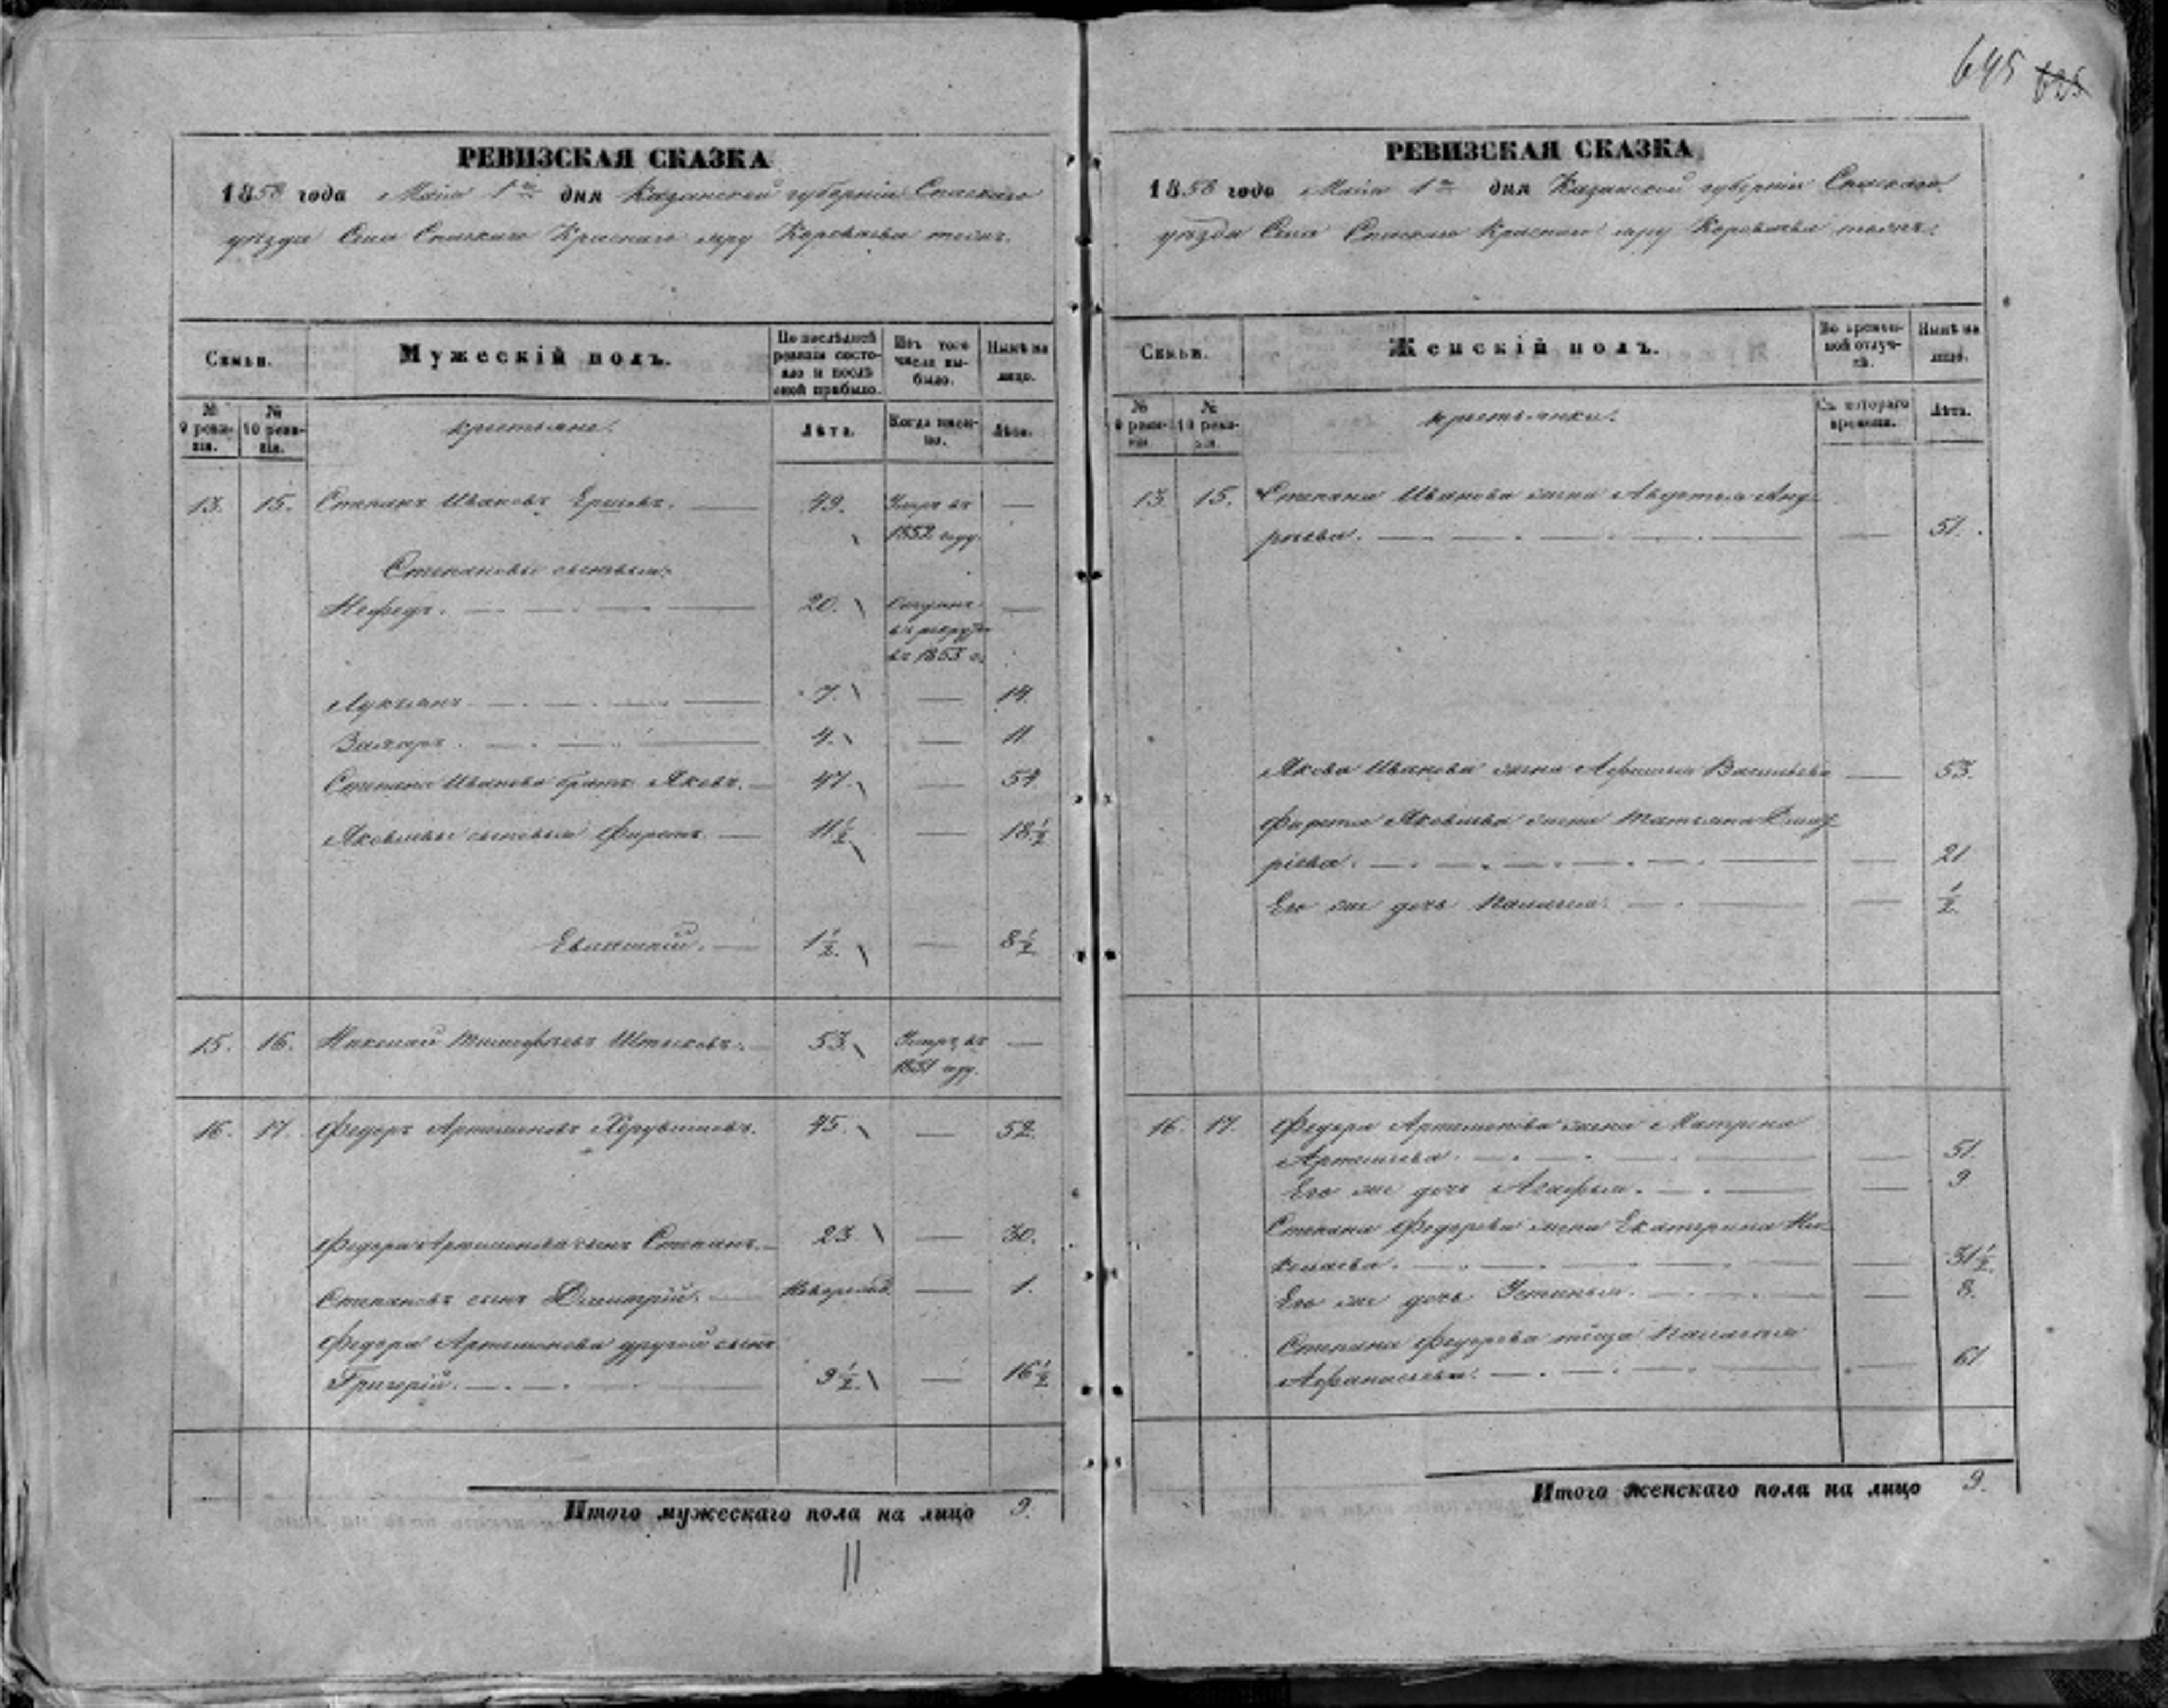 645 625
РЕВИЗСКАЯ СКАЗКА
1858 года Маія 1го дня Казанской губерніи Спаскаго
уѣзда Села Спаскаго Красной тожъ.
Семьи.
Мужескій полъ.
По послѣдней ревизіи состояло и послѣ оной прибыло.
Изъ того числа выбыло.
Нынѣ на лицо.
№ 9 ревизіи.
№ 10 ревизіи.
крестьяне.
Лѣта.
Когда именно.
Лѣта.
13. 15. Степанъ Ивановъ Ершовъ. 49. Умеръ въ —
1852 году.
Степановы сыновья:
Нефедъ. 20. Отданъ —
въ рекруты
въ 1853 г.
Лукьянъ 7. — 14.
Захаръ. 4. — 11
Степана Иванова братъ Яковъ. 47. — 54.
Яковлевы сыновья Фирстъ 11 1/2 — 18 1/2
Евлампій. 1 1/2. — 8 1/2
15. 16. Николай Тимофѣевъ Штыковъ. 53. Умеръ въ —
1851 году.
16. 17. Федоръ Артамоновъ Херувимовъ. 45. — 52.
Федора Артамонова сынъ Степанъ. 23 — 30.
Степановъ сынъ Дмитрій. Новорожд. — 1.
Федора Артамонова другой сынъ
Григорій. 9 1/2 — 16 1/2
Итого мужескаго пола на лицо 9.
11
РЕВИЗСКАЯ СКАЗКА
1858 года Маія 1го дня Казанской губерніи Спаскаго
уѣзда Села Спаскаго Красной тожъ.
Семьи.
Женскій полъ.
Во временной отлучкѣ.
Нынѣ на лицо.
№ 9 ревизіи.
№ 10 ревизіи.
крестьянки.
Съ котораго времени.
Лѣта.
13 15. Степана Иванова жена Авдотья Анд-
рѣева. — 51.
Якова Иванова жена Афимья Васильева — 53.
Фирста Яковлева жена Татьяна Дмит-
ріева. — 21
Его же дочь Палагея. — 1/2
16. 17. Федора Артамонова жена Матрена
Артемьева. — 51.
Его же дочь Агафья. — 9
Степана Федорова жена Екатерина Ни-
колаева. — 31 1/2
Его же дочь Устинья. — 8.
Степана Федорова теща Палагея
Афанасьева. — 61
Итого женскаго пола на лицо 9.